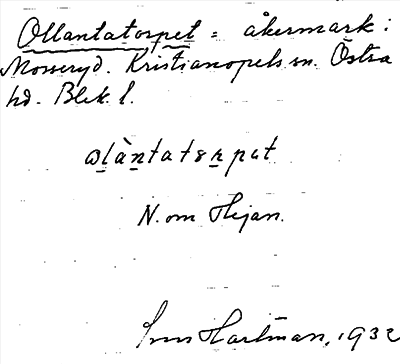 Ollantatorpet = åkermark i
Mosseryd. Kristianopels sn. Östra
hd. Blek. l.
N. om Hejan.
Hartman, 1932